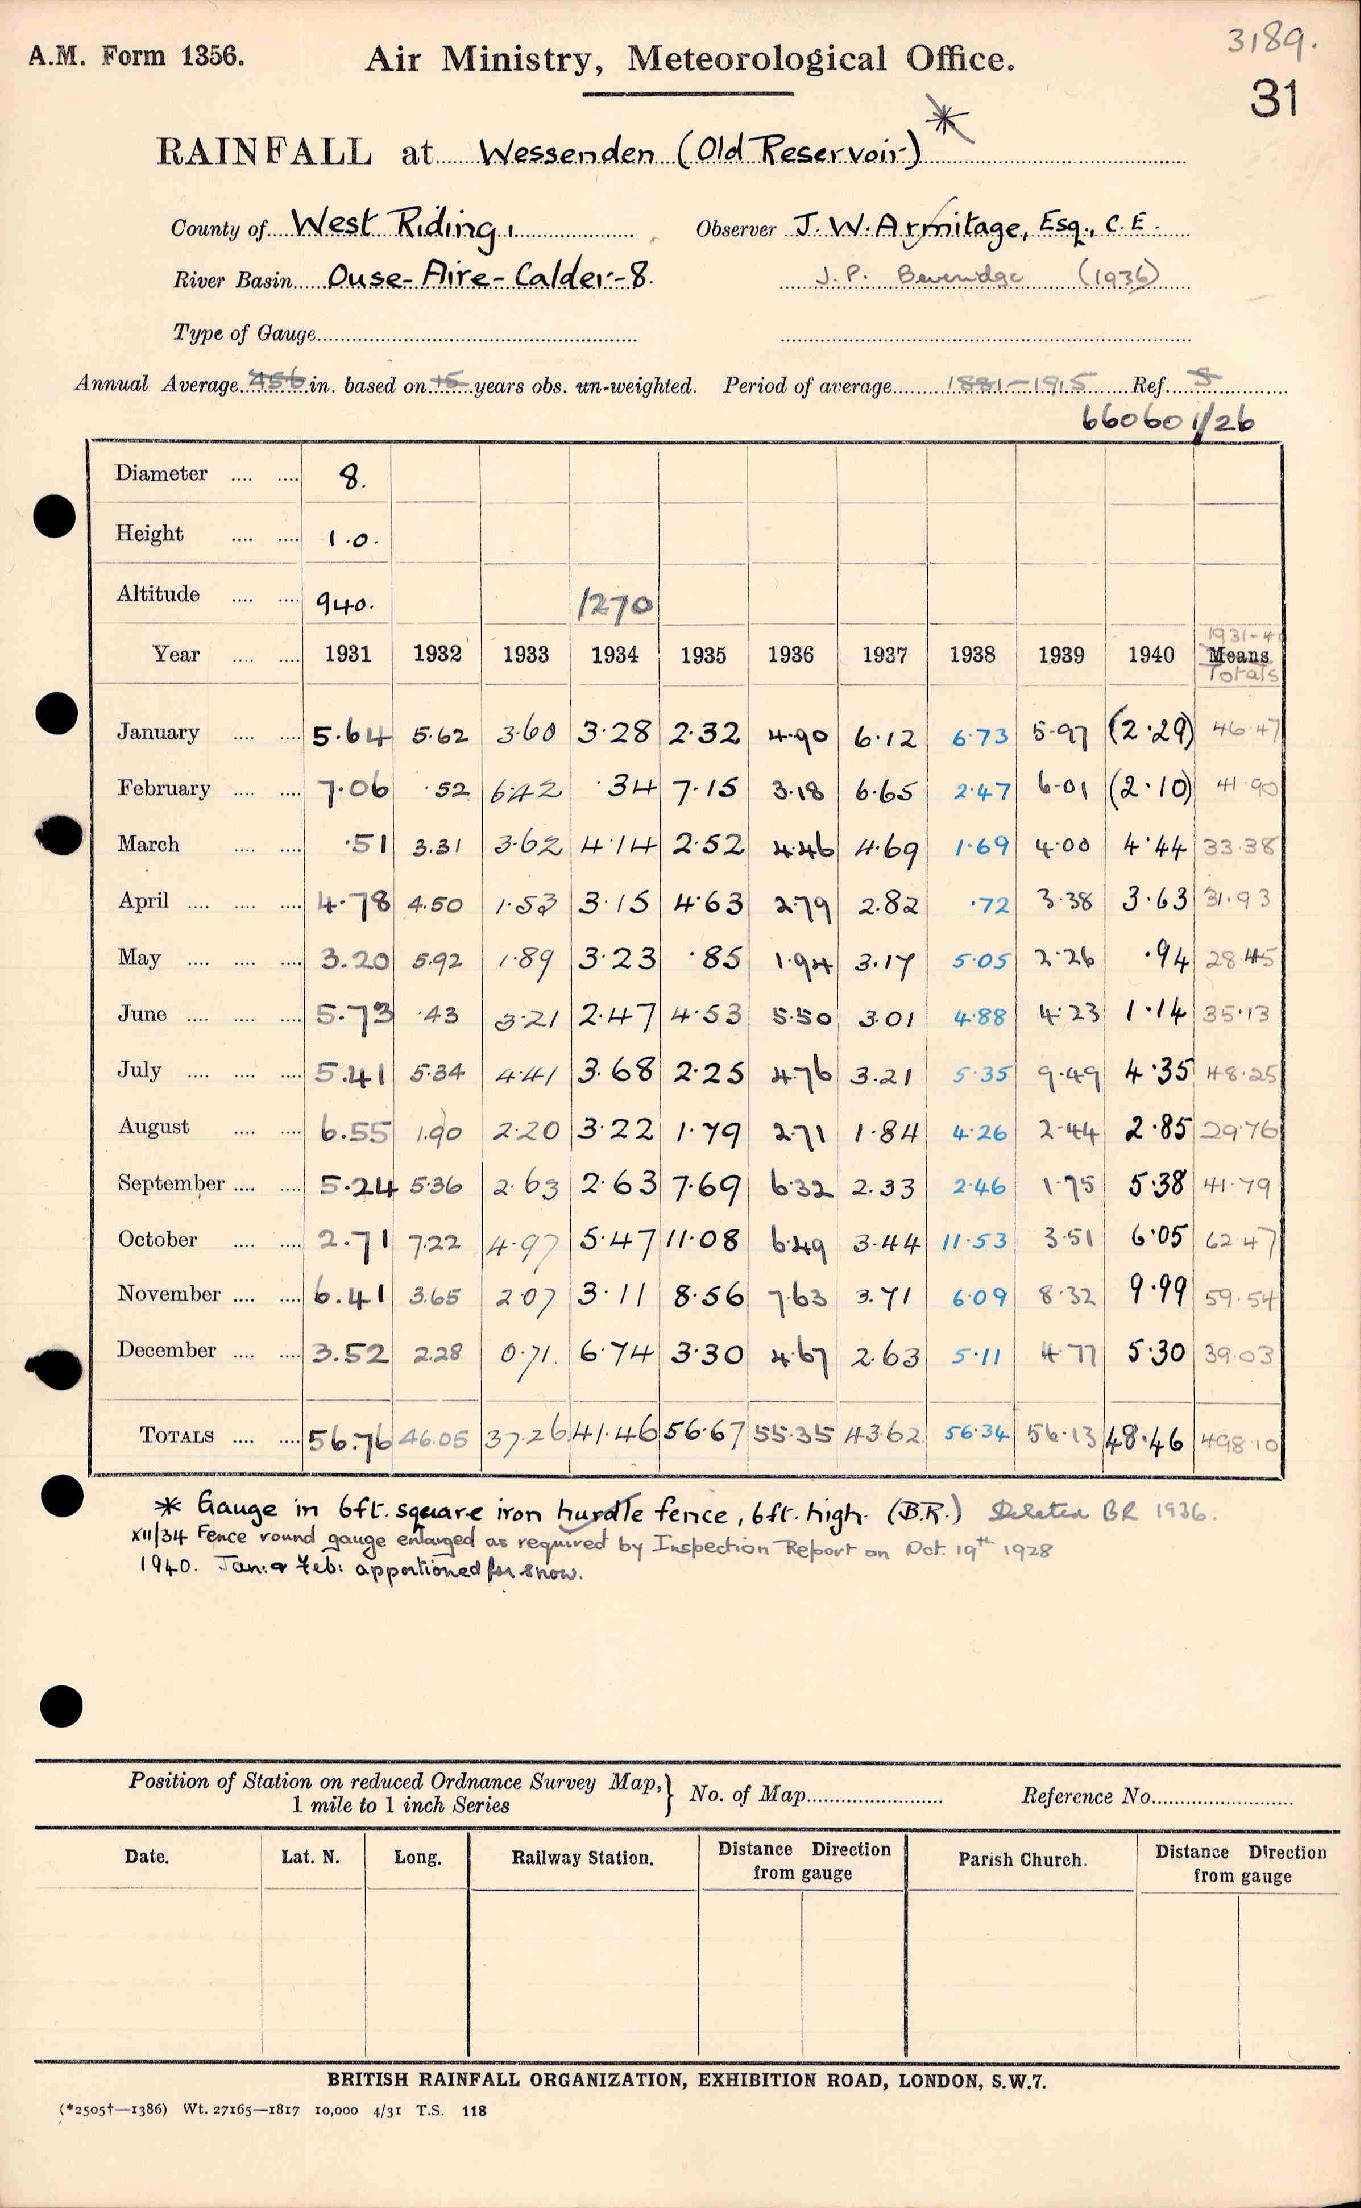 3189.
A.M. Form 1356. Air Ministry, Meteorological Office.
31
RAINFALL at Wessenden (Old Reservoir) *
County of West Riding. Observer J. W. Armitage, Esq., C.E.
River Basin Ouse-Aire-Calder-8. J. P. Beveridge (1936)
Type of Gauge
Annual Average in. based on years obs. un-weighted. Period of average 1881-1915 Ref. 5
660601/26
Diameter 8.
Height 1.0.
Altitude 940. 1270
Year 1931 1932 1933 1934 1935 1936 1937 1938 1939 1940 1931-40 Means Totals
January 5.64 5.62 3.60 3.28 2.32 4.90 6.12 6.73 5.97 (2.29) 46.47
February 7.06 .52 6.42 .34 7.15 3.18 6.65 2.47 6.01 (2.10) 41.90
March .51 3.31 3.62 4.14 2.52 4.46 4.69 1.69 4.00 4.44 33.38
April 4.78 4.50 1.53 3.15 4.63 2.79 2.82 .72 3.38 3.63 31.93
May 3.20 5.92 1.89 3.23 .85 1.94 3.17 5.05 2.26 .94 28.45
June 5.73 .43 3.21 2.47 4.53 5.50 3.01 4.88 4.23 1.14 35.13
July 5.41 5.34 4.41 3.68 2.25 4.76 3.21 5.35 9.49 4.35 48.25
August 6.55 1.90 2.20 3.22 1.79 2.71 1.84 4.26 2.44 2.85 29.76
September 5.24 5.36 2.63 2.63 7.69 6.32 2.33 2.46 1.75 5.38 41.79
October 2.71 7.22 4.97 5.47 11.08 6.49 3.44 11.53 3.51 6.05 62.47
November 6.41 3.65 2.07 3.11 8.56 7.63 3.71 6.09 8.32 9.99 59.54
December 3.52 2.28 0.71. 6.74 3.30 4.67 2.63 5.11 4.77 5.30 39.03
TOTALS 56.76 46.05 37.26 41.46 56.67 55.35 43.62 56.34 56.13 48.46 498.10
* Gauge in 6ft. square iron hurdle fence, 6ft. high. (B.R.) Deleted BR 1936.
XII/34 Fence round gauge enlarged as required by Inspection Report on Oct. 19th 1928
1940. Jan: & Feb: apportioned for snow.
Position of Station on reduced Ordnance Survey Map, 1 mile to 1 inch Series } No. of Map Reference No.
Date. Lat. N. Long. Railway Station. Distance Direction from gauge Parish Church. Distance Direction from gauge
BRITISH RAINFALL ORGANIZATION, EXHIBITION ROAD, LONDON, S.W.7.
(*2505†—1386) Wt. 27165—1817 10,000 4/31 T.S. 118